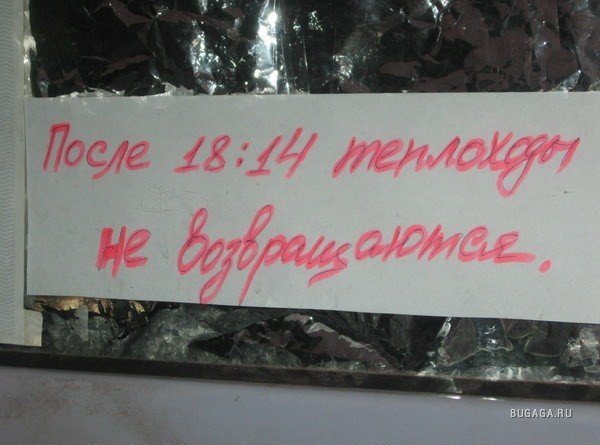 После 18:14 теплоходы
не возвращаются.
BUGAGA.RU